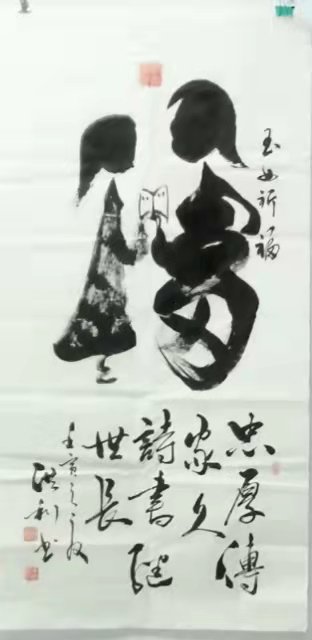 玉女祈福
福
忠厚傳
家久
詩書繼
世長
壬寅之秋
洪利书